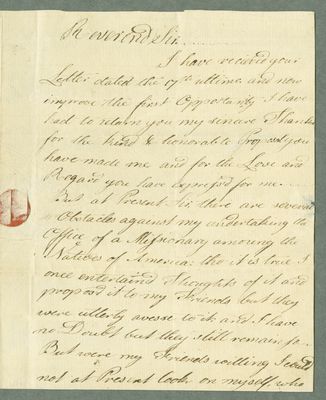 Reverend Sir
I have received your
Letter dated the 17th ultimo and now
improve the first Opportunity I have
had to return you my sincere Thanks
for the kind & honorable Proposal you
have made me and for the Love and
Regard you have expressed for me.
But at Present Sir there are several
Obstacles against my undertaking the
Office of a Missionary amoung the
Natives of America tho it is true I
once entertained Thoughts of it and
proposed it to my Friends but they
were utterly averse to it and I have
no Doubt but they still remain so.
But were my Friends willing I could
not at Present look on myself, who